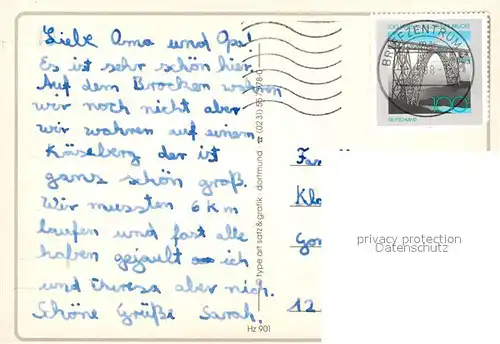 Liebe Oma und Opa!
Es ist sehr schön hier.
Auf dem Brocken wahren
wir noch nicht aber
wir wahren auf einem
Käseberg der ist
gans schön groß.
Wir mussten 6 Km
laufen und fast alle
haben gejault ich
und Theresa aber nich.
Schöne Grüße Sarah.
Hz 901
© type art satz & grafik · dortmund · ☎ (0231) 55
BRIEFZENTRUM
100
DEUTSCHLAND
Fa
Klo
Go
12
privacy protection
Datenschutz